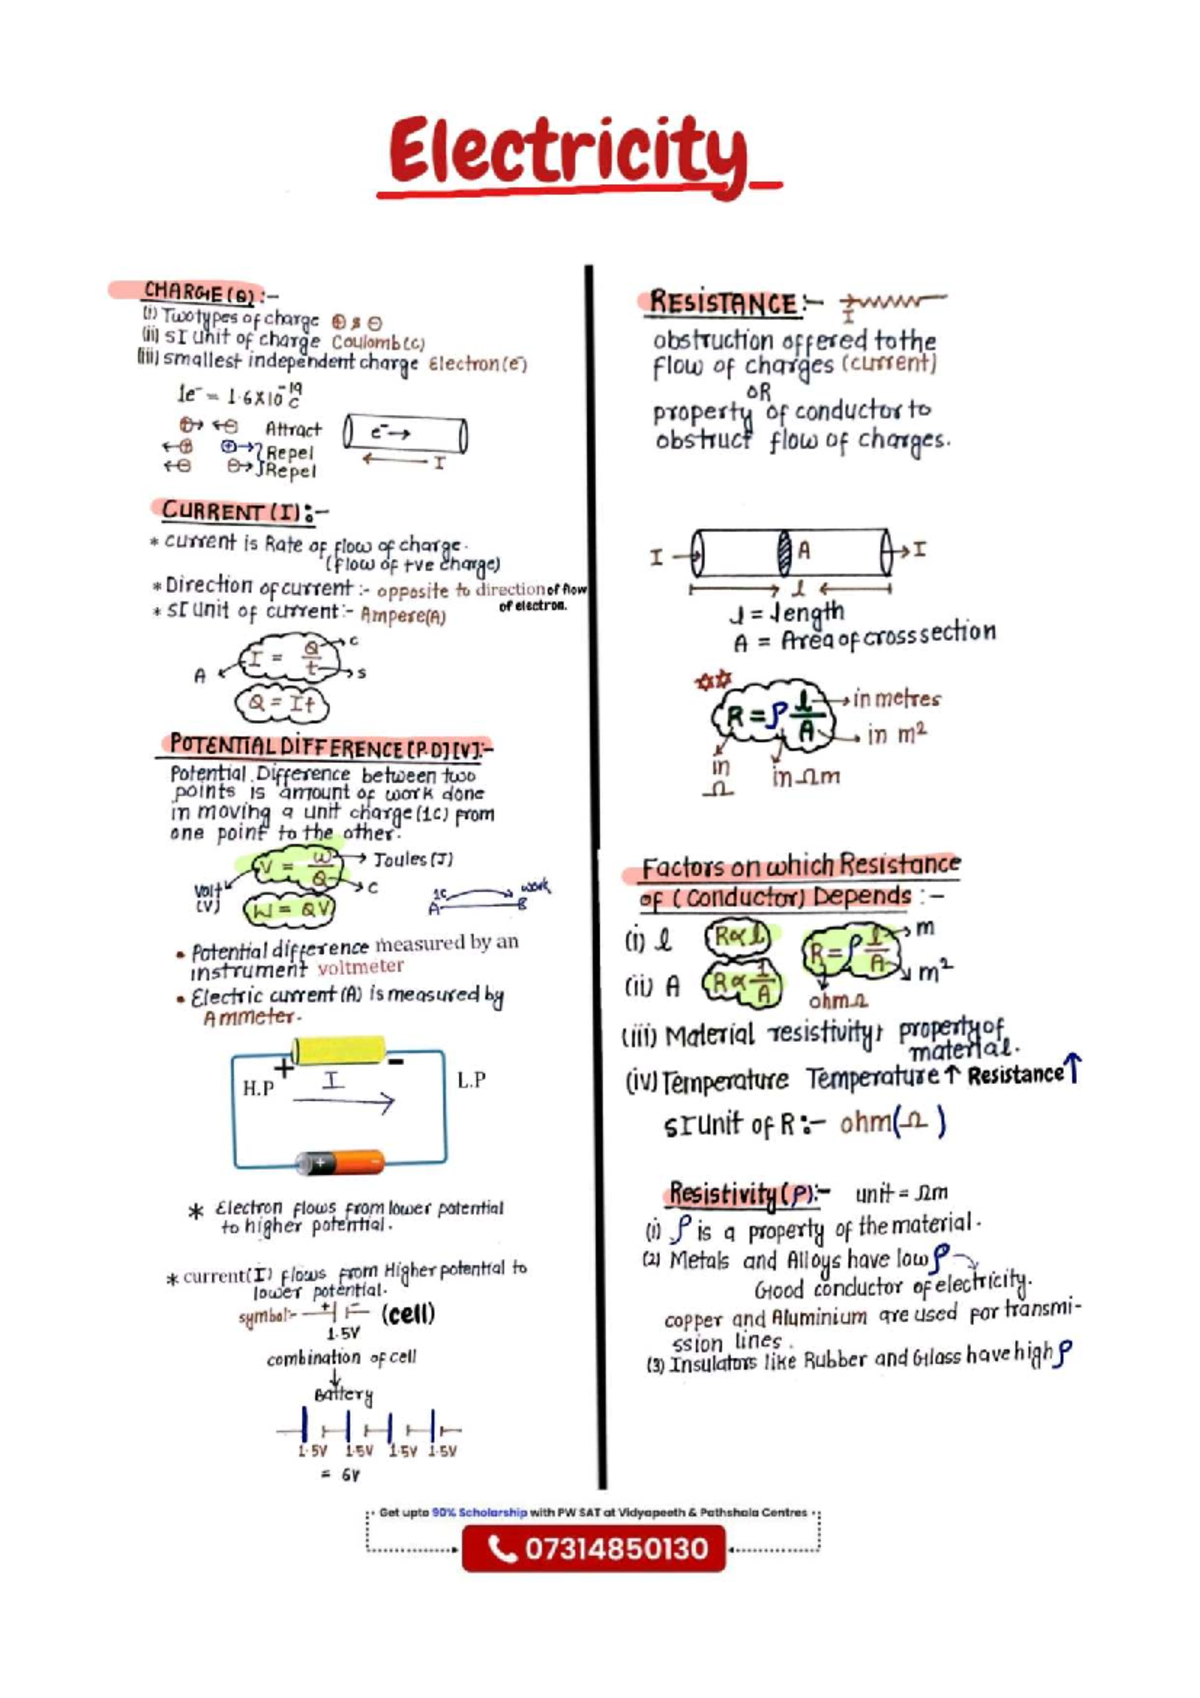 Electricity
CHARGE(Q):-
(i) Two types of charge ⊕ & ⊖
(ii) SI unit of charge Coulomb(C)
(iii) smallest independent charge Electron(e⁻)
1e⁻ = 1.6X10⁻¹⁹ C
⊕→ ←⊖ Attract
←⊕ ⊕→ Repel
←⊖ ⊖→ Repel
e⁻→
I
CURRENT(I):-
* current is Rate of flow of charge.
(flow of +ve charge)
* Direction of current :- opposite to direction of flow
of electron.
* SI unit of current:- Ampere(A)
A I = Q/t C
s
Q = It
POTENTIAL DIFFERENCE[P.D][V]:-
Potential Difference between two
points is amount of work done
in moving a unit charge(1C) from
one point to the other.
V = W/Q Joules(J)
C
Volt
(V)
W = QV
1C work
A B
• Potential difference measured by an
instrument voltmeter
• Electric current(A) is measured by
Ammeter.
+ -
H.P I L.P
+
* Electron flows from lower potential
to higher potential.
* current(I) flows from Higher potential to
lower potential.
symbol:- + - (cell)
1.5V
combination of cell
↓
Battery
1.5V 1.5V 1.5V 1.5V
= 6V
RESISTANCE:-
I
obstruction offered to the
flow of charges (current)
OR
property of conductor to
obstruct flow of charges.
I A I
l
l = length
A = Area of cross section
R = ρ l/A in metres
in m²
in
Ω
in Ωm
Factors on which Resistance
of (Conductor) Depends :-
(i) l R∝l R=ρ l/A m
m²
(ii) A R∝1/A ohmΩ
(iii) Material resistivity, property of
material.
(iv) Temperature Temperature↑ Resistance↑
SI unit of R:- ohm(Ω)
Resistivity(ρ):- unit = Ωm
(i) ρ is a property of the material.
(2) Metals and Alloys have low ρ
Good conductor of electricity.
copper and Aluminium are used for transmi-
ssion lines.
(3) Insulators like Rubber and Glass have high ρ
Get upto 90% Scholarship with PW SAT at Vidyapeeth & Pathshala Centres
07314850130